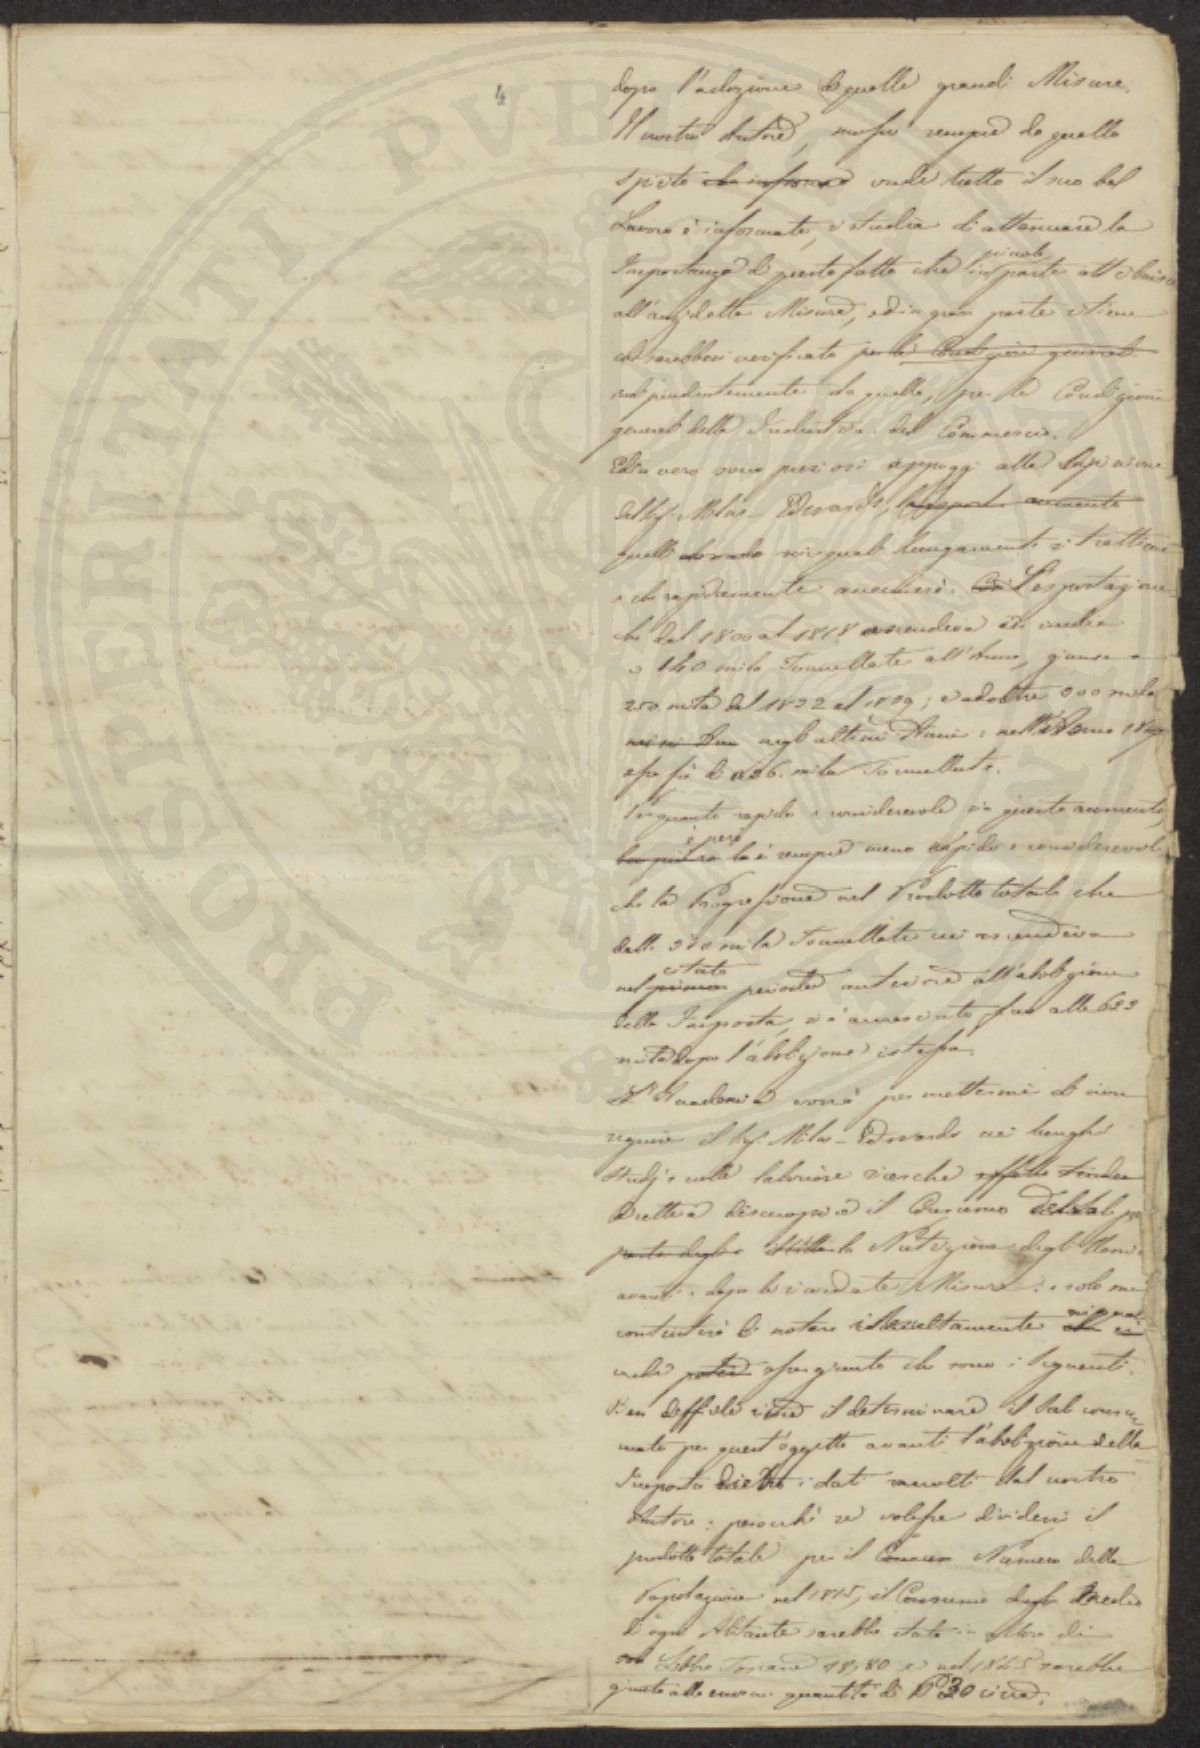 4
dopo l'adozione di quelle grandi Misure.
Il nostro Autore, mosso sempre da quello
spirito che informa onde tutto il suo bel
Lavoro è informato, si studia di attenuare la
Importanza di questo fatto che in piccola parte attribuisce
all'anzidette Misure, ed in gran parte ritiene
che sarebbesi verificato per le Condizioni generali
indipendentemente da quelle, per le Condizioni
generali della Industria e del Commercio.
Ed in vero sono preziosi appoggi alla Opinione
del Sig. Milne-Edwards,
quelli sui quali lungamente si trattiene
e che rapidamente L'esportazione
che dal 1800 al 1818 ascendeva in media
a 140 mila Tonnellate all'Anno, giunse a
250 mila dal 1822 al 1839; ed a oltre 300 mila
negli ultimi Anni: nell'Anno
essa fu di mila Tonnellate.
Per quanto rapido e considerevole sia questo aumento,
è però
lo è sempre meno rapido e considerevole
che la Progressione nel Prodotto totale che
dalle mila Tonnellate cui ascendeva
citato
nel primo periodo anteriore all'abolizione
della Imposta, si è accresciuto fino alle
mila dopo l'abolizione istessa.
L'Accademia vorrà permettermi di non
seguire il Sig. Milne-Edwards nei lunghi
studj e nelle laboriose ricerche
dirette a discuoprire il Consumo del Sale per
parte degli la Nutrizione degli Uomini
avanti e dopo le ricordate Misure: e solo mi
contenterò di notare i Resultamente ai quali
crede potere esser giunto che sono i seguenti.
Ben difficile è il determinare il Sale consu-
mato per quest'oggetto avanti l'abolizione della
Imposta dietro i dati raccolti dal nostro
Autore: perocchè se volesse dividersi il
prodotto totale per il Numero della
Popolazione nel 1815, il Consumo medio
d'ogni Abitante sarebbe stato
Libbre Toscane 18,80 e nel 1845 sarebbe
giunto alla quantità di 30 circa.